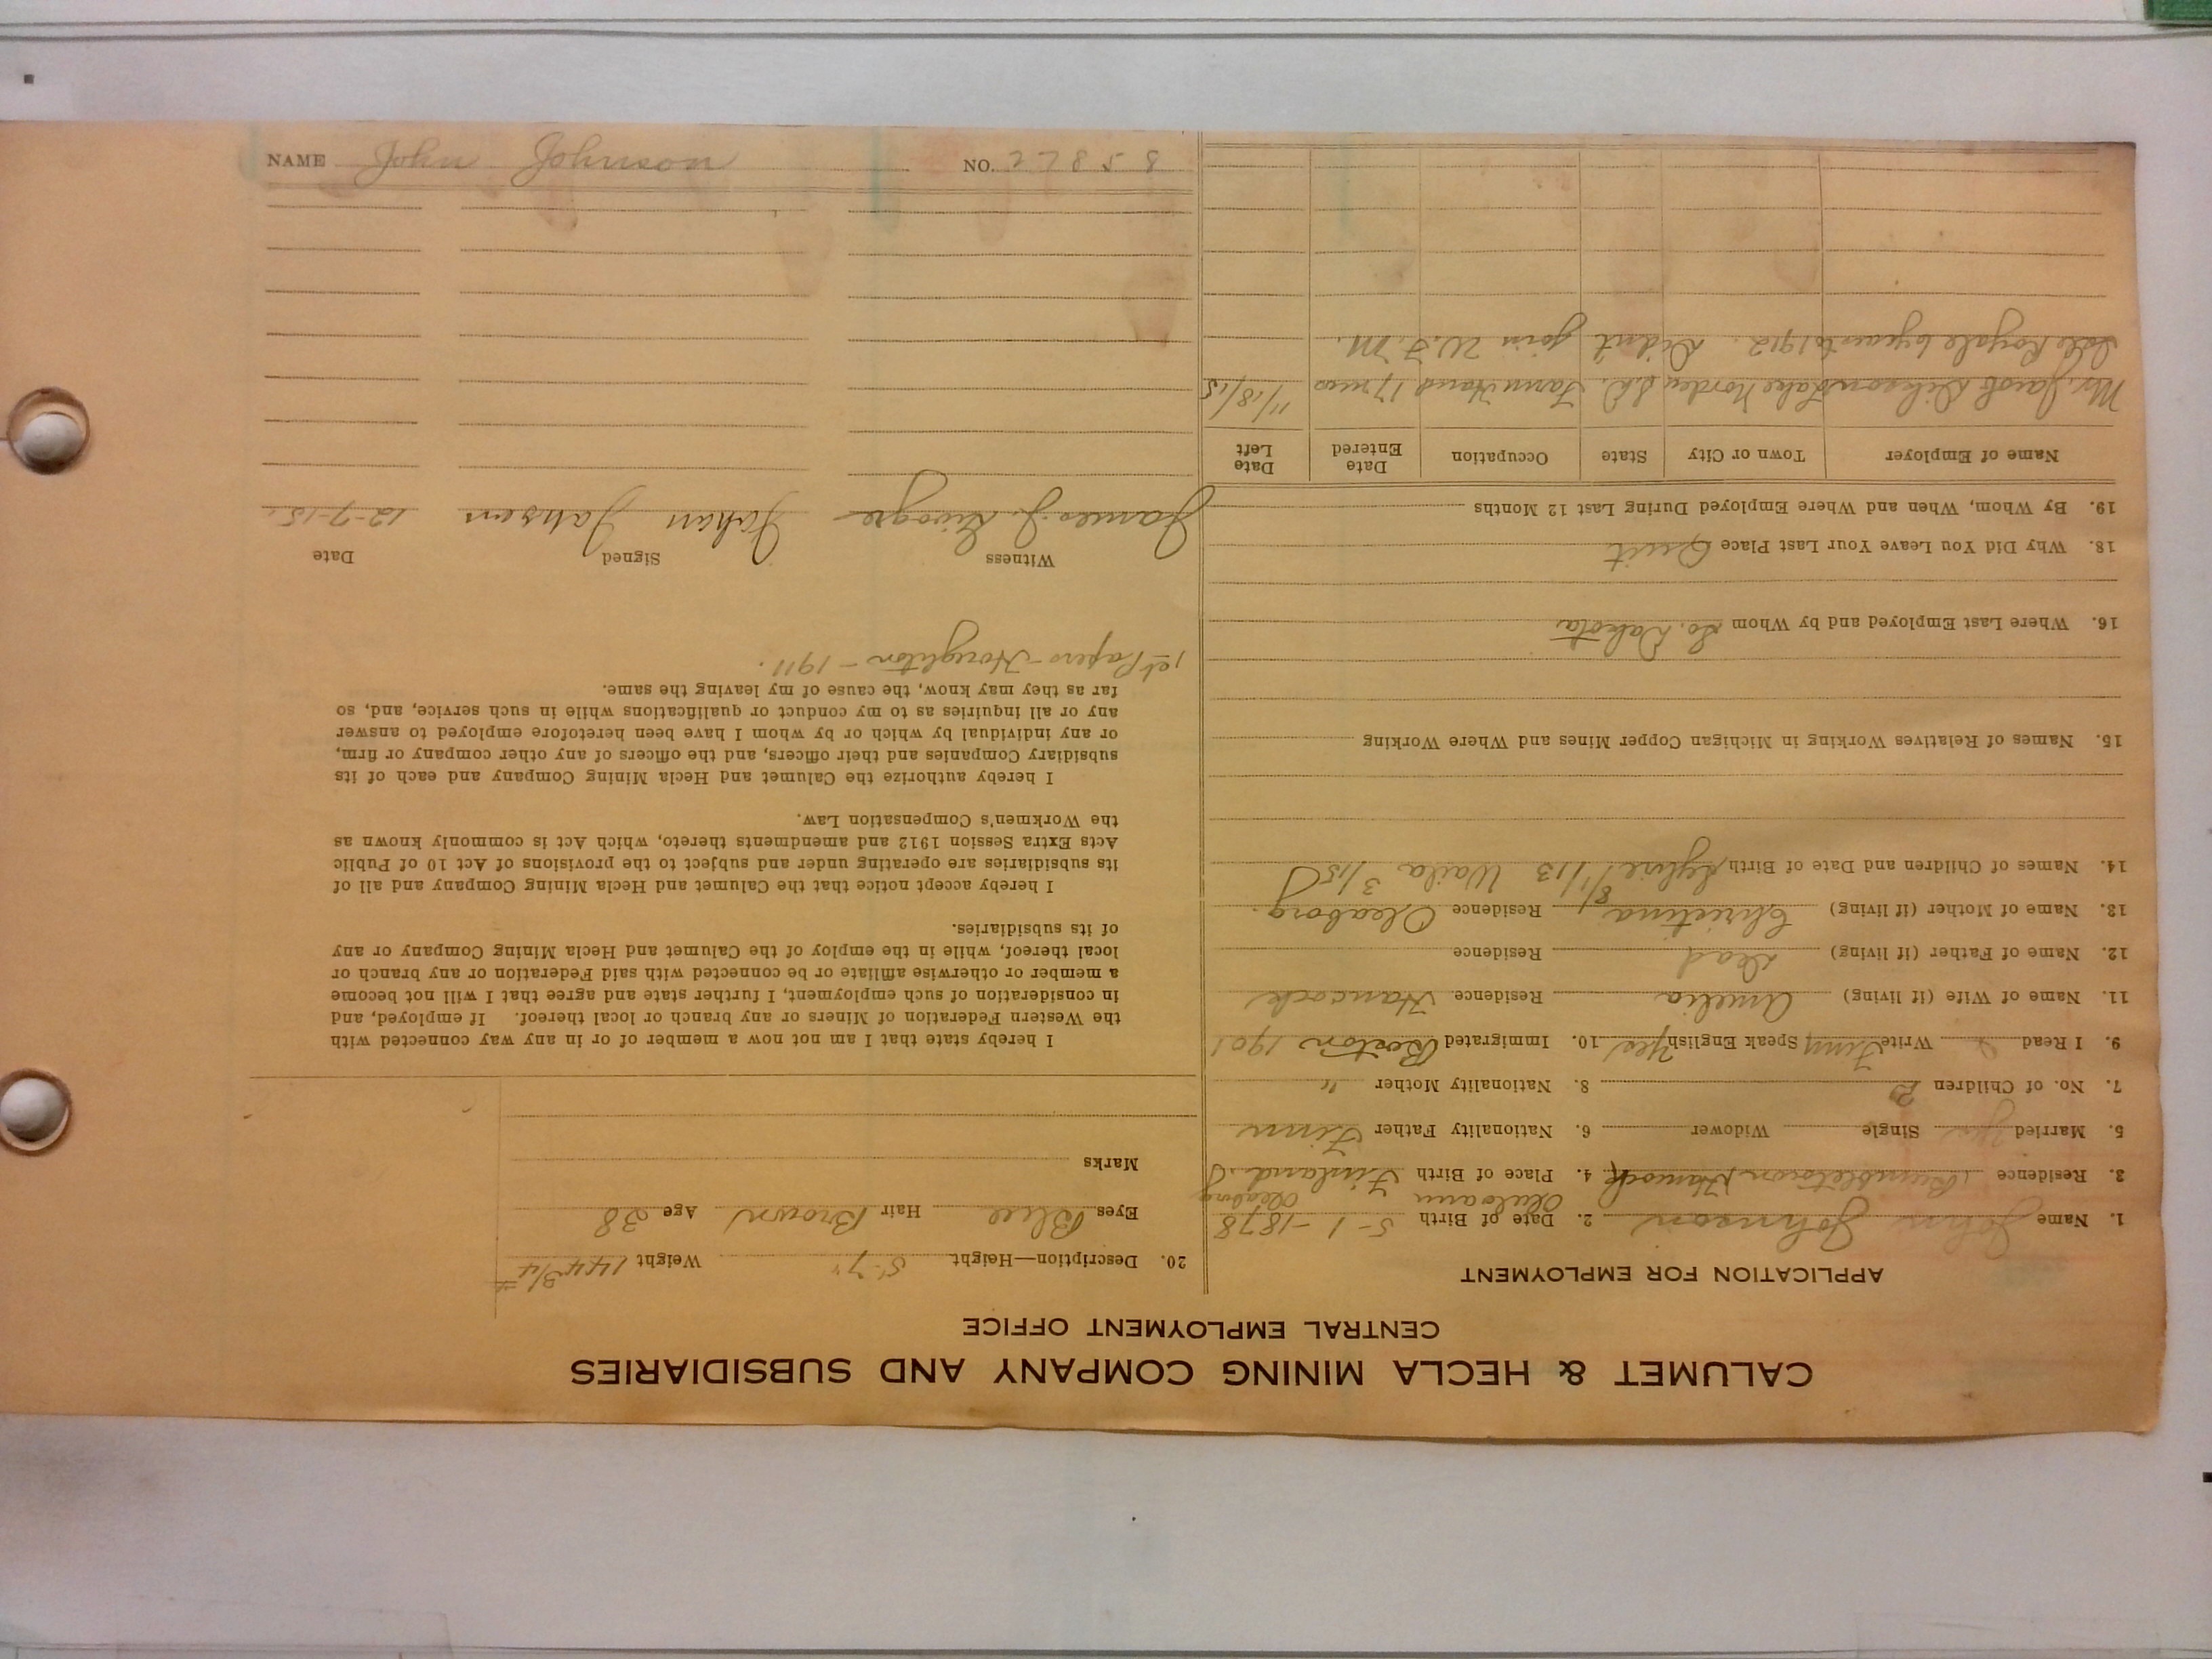 CALUMET & HECLA MINING COMPANY AND SUBSIDIARIES
CENTRAL EMPLOYMENT OFFICE
APPLICATION FOR EMPLOYMENT
1. Name John Johnson 2. Date of Birth 5-1-1878
3. Residence Hancock 4. Place of Birth Finland
5. Married Yes Single Widower 6. Nationality Father Finn
7. No. of Children 2 8. Nationality Mother "
9. I Read Write Finn Speak English Yes 10. Immigrated Boston 1901
11. Name of Wife (if living) Amelia Residence Hancock
12. Name of Father (if living) Dead Residence
13. Name of Mother (if living) Christina Residence Oleaborg.
14. Names of Children and Date of Birth 8/1/13 Waila 3/15
15. Names of Relatives Working in Michigan Copper Mines and Where Working
16. Where Last Employed and by Whom So. Dakota
18. Why Did You Leave Your Last Place Quit
19. By Whom, When and Where Employed During Last 12 Months
Name of Employer Town or City State Occupation Date Entered Date Left
Mr. Jacob Lake Norden S.D. Farm Hand 17 mos 11/18/15
Isle Royale 6 years to 1912. Didnt join W.F.M.
20. Description—Height 5'-7" Weight 144 3/4 #
Eyes Blue Hair Brown Age 38
Marks
I hereby state that I am not now a member of or in any way connected with
the Western Federation of Miners or any branch or local thereof. If employed, and
in consideration of such employment, I further state and agree that I will not become
a member or otherwise affiliate or be connected with said Federation or any branch or
local thereof, while in the employ of the Calumet and Hecla Mining Company or any
of its subsidiaries.
I hereby accept notice that the Calumet and Hecla Mining Company and all of
its subsidiaries are operating under and subject to the provisions of Act 10 of Public
Acts Extra Session 1912 and amendments thereto, which Act is commonly known as
the Workmen's Compensation Law.
I hereby authorize the Calumet and Hecla Mining Company and each of its
subsidiary Companies and their officers, and the officers of any other company or firm,
or any individual by which or by whom I have been heretofore employed to answer
any or all inquiries as to my conduct or qualifications while in such service, and, so
far as they may know, the cause of my leaving the same.
1st Papers - Houghton - 1911.
Witness Signed Date
James J. Johan 12-7-15.
NAME John Johnson NO. 27858